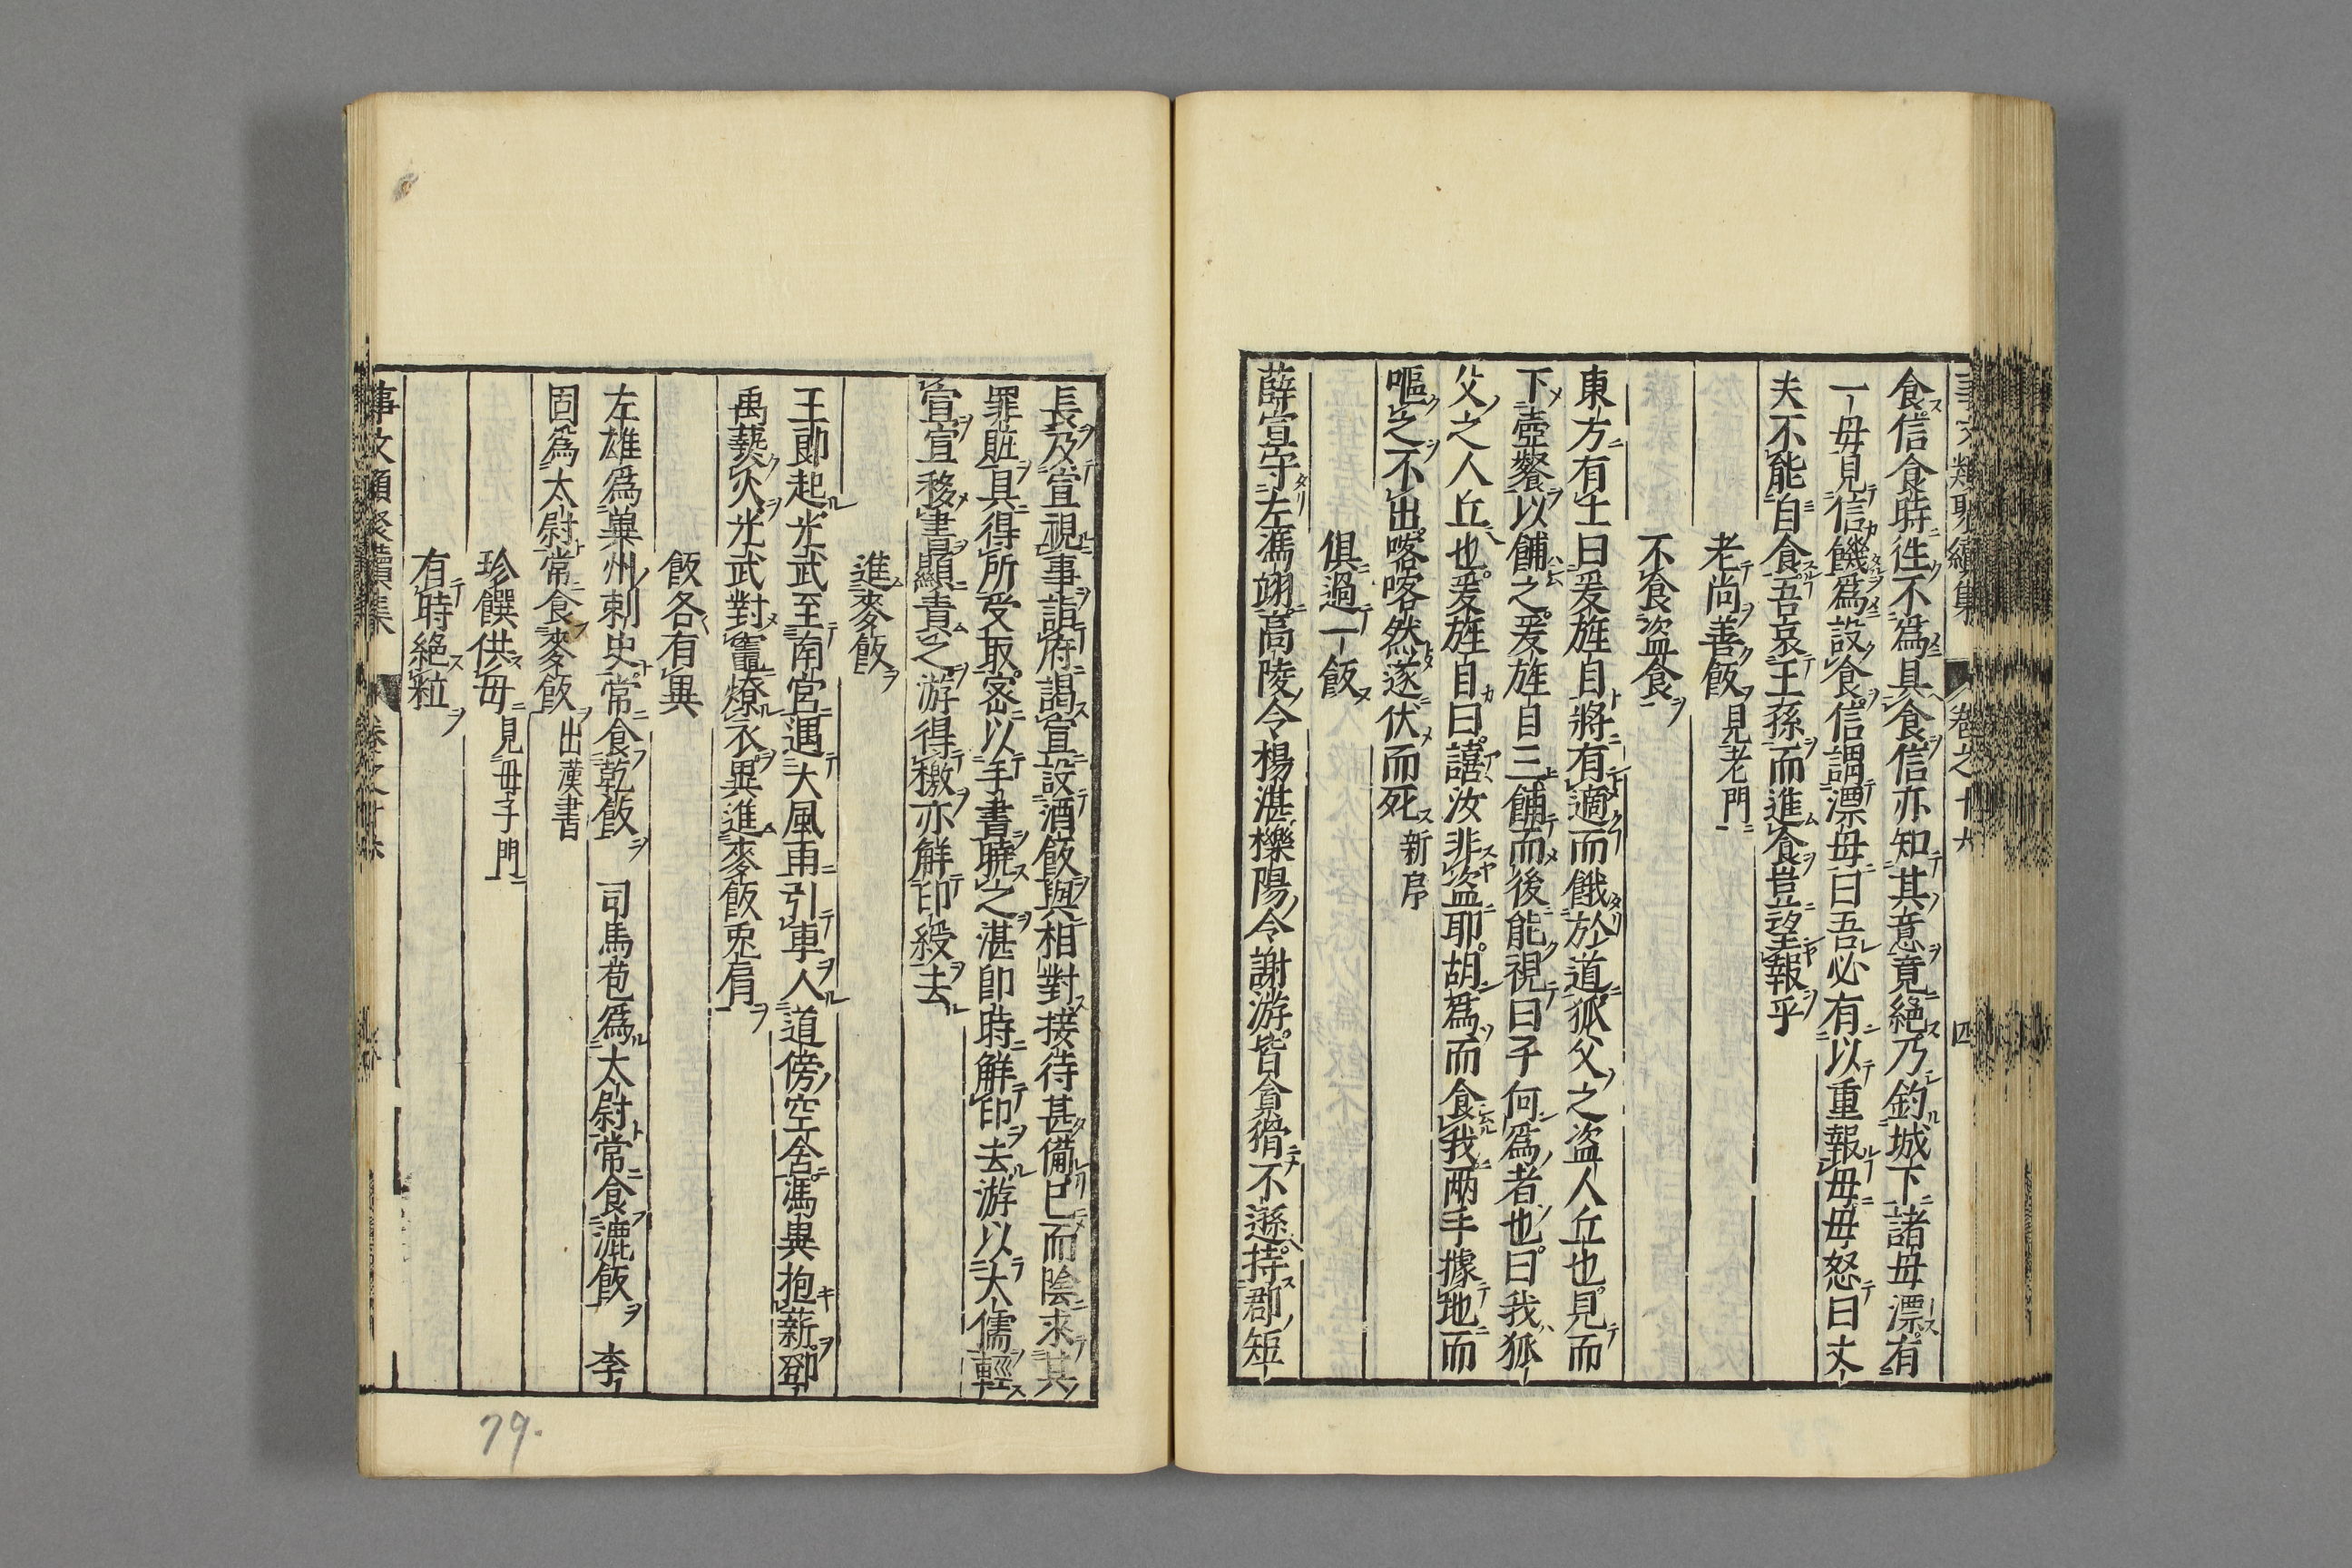 事文類聚續集 卷之十六 四
食信食時徃不爲具食信亦知其意竟絕乃釣城下諸毋漂有
一毋見信饑爲設食信謂漂毋曰吾必有以重報毋毋怒曰丈
夫不能自食吾哀王孫而進食豈望報乎
老尚善飯 見老門
不食盜食
東方有士曰爰旌自將有適而餓於道狐父之盜人丘也見而
下壺餐以餔之爰旌自三餔而後能視曰子何爲者也曰我狐
父之人丘也爰旌自曰譆汝非盜耶胡爲而食我两手據地而
嘔之不出喀喀然遂伏而死 新序
俱過一飯
薛宣守左馮翊高陵令楊湛櫟陽令謝游皆貪猾不遜持郡短
長及宣視事詣府謁宣設酒飯與相對接待甚備已而陰求其
罪賍具得所受取宻以手書曉之湛卽時解印去游以大儒輕
宣宣移書顯責之游得檄亦解印綬去
進麥飯
王郎起光武至南宮遇大風雨引車人道傍空舍馮異抱薪鄧
禹爇火光武對竈燎衣異進麥飯兎肩
飯各有異
左雄爲冀州刺史常食乾飯 司馬苞爲太尉常食漉飯 李
固爲太尉常食麥飯 出漢書
珍饌供毋 見毋子門
有時絕粒
事文類聚續集